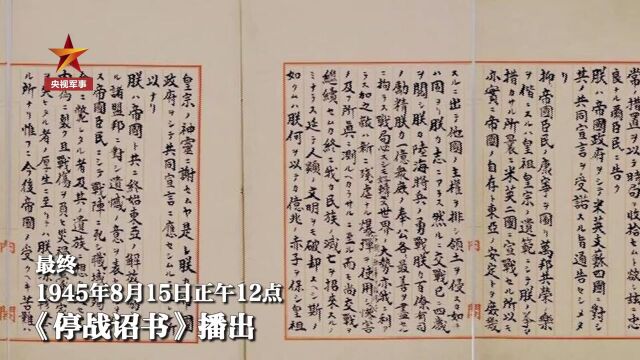 央视军事
常ノ措置ヲ以テ時局ヲ收拾セムト欲シ茲ニ忠
良ナル爾臣民ニ告ク
朕ハ帝國政府ヲシテ米英支蘇四國ニ對シ其ノ
共同宣言ヲ受諾スル旨通告セシメタ
リ
抑帝國臣民ノ康寧ヲ圖リ萬邦共榮ノ樂
ヲ偕ニスルハ皇祖皇宗ノ遺範ニシテ朕ノ拳
措カサル所曩ニ米英二國ニ宣戰セル所以モ
亦實ニ帝國ノ自存ト東亞ノ安定トヲ庶幾
スルニ出テ他國ノ主權ヲ排シ領土ヲ侵スカ如キ
ハ固ヨリ朕カ志ニアラス然ルニ交戰已ニ四歳
ヲ閲シ朕カ陸海將兵ノ勇戰朕カ百僚有司
ノ勵精朕カ一億衆庶ノ奉公各最善ヲ盡セルニ
拘ラス戰局必スシモ好轉セス世界ノ大勢亦我ニ利
アラス加之敵ハ新ニ殘虐ナル爆彈ヲ使用シ慘害ノ
及フ所眞ニ測ルヘカラサルニ至ル而モ尚交戰ヲ
繼續セムカ終ニ我カ民族ノ滅亡ヲ招來スルノ
ミナラス延テ人類ノ文明ヲモ破却スヘシ斯ノ
如クムハ朕何ヲ以テカ億兆ノ赤子ヲ保シ皇祖
皇宗ノ神靈ニ謝セムヤ是レ朕
政府ヲシテ共同宣言ニ應セシムル
以ナリ
朕ハ帝國ト共ニ終始東亞ノ解放
ル諸盟邦ニ對シ遺憾ノ意ヲ表
ス帝國臣民ニシテ戰陣ニ死シ職域
ル所ナリ惟フニ今後帝國ノ受クヘキ苦難ハ
最终
1945年8月15日正午12点
《停战诏书》播出